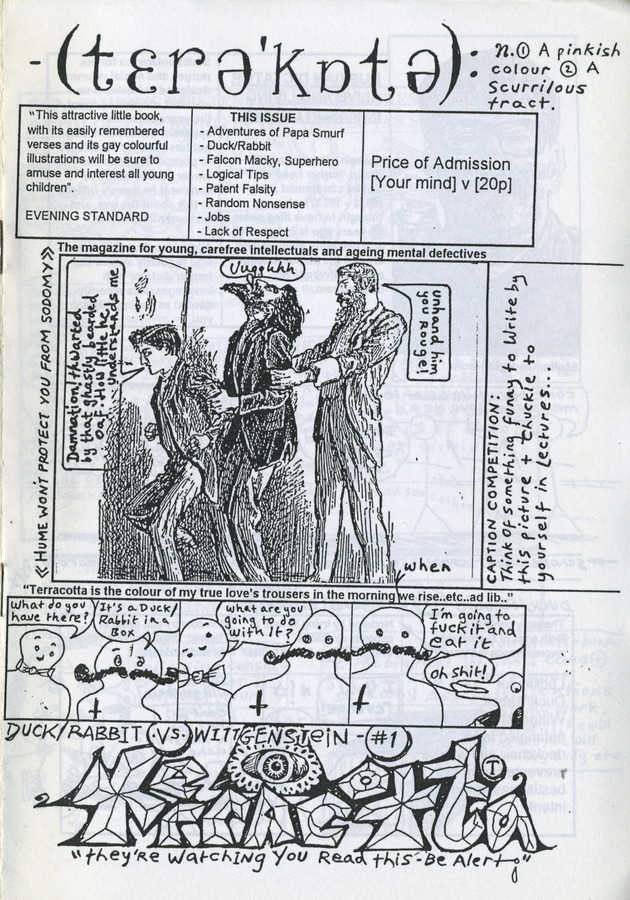 -(tɛrə'kɒtə):
n.① A pinkish
colour ② A
Scurrilous
tract.
"This attractive little book,
with its easily remembered
verses and its gay colourful
illustrations will be sure to
amuse and interest all young
children".
EVENING STANDARD
THIS ISSUE
- Adventures of Papa Smurf
- Duck/Rabbit
- Falcon Macky, Superhero
- Logical Tips
- Patent Falsity
- Random Nonsense
- Jobs
- Lack of Respect
Price of Admission
[Your mind] v [20p]
The magazine for young, carefree intellectuals and ageing mental defectives
« HUME WON'T PROTECT YOU FROM SODOMY »
Damnation! thwarted
by that ghastly bearded
oaf. How little he
understands me
Uugghhh
unhand him
you Rouge!
CAPTION COMPETITION:
Think of something funny to Write by
this picture + chuckle to
yourself in Lectures...
when
"Terracotta is the colour of my true love's trousers in the morning we rise..etc..ad lib.."
what do you
have there?
It's a Duck/
Rabbit in a
Box
what are you
going to do
with It?
I'm going to
fuck it and
eat it
oh shit!
DUCK/RABBIT .Vs. WITTGENSTEIN - (#1)
Terracotta
"they're Watching You Read this - Be Alert"